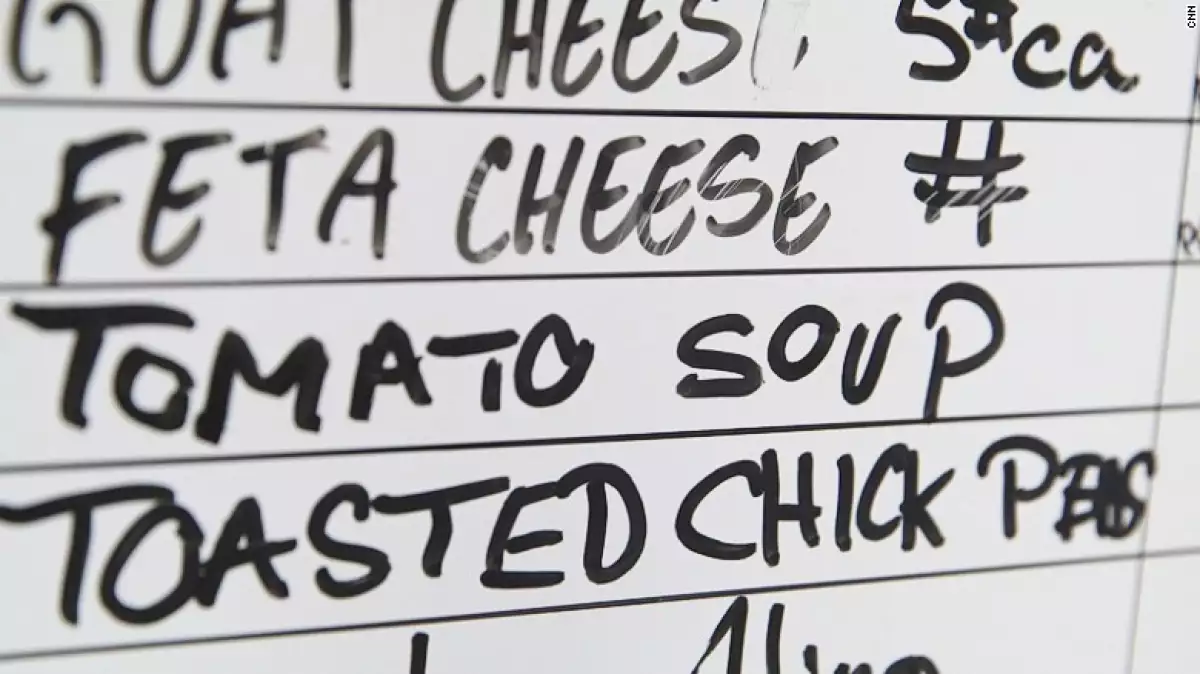 GOAT CHEESE 5#ca
FETA CHEESE #
TOMATO SOUP
TOASTED CHICK PEAS
CNN